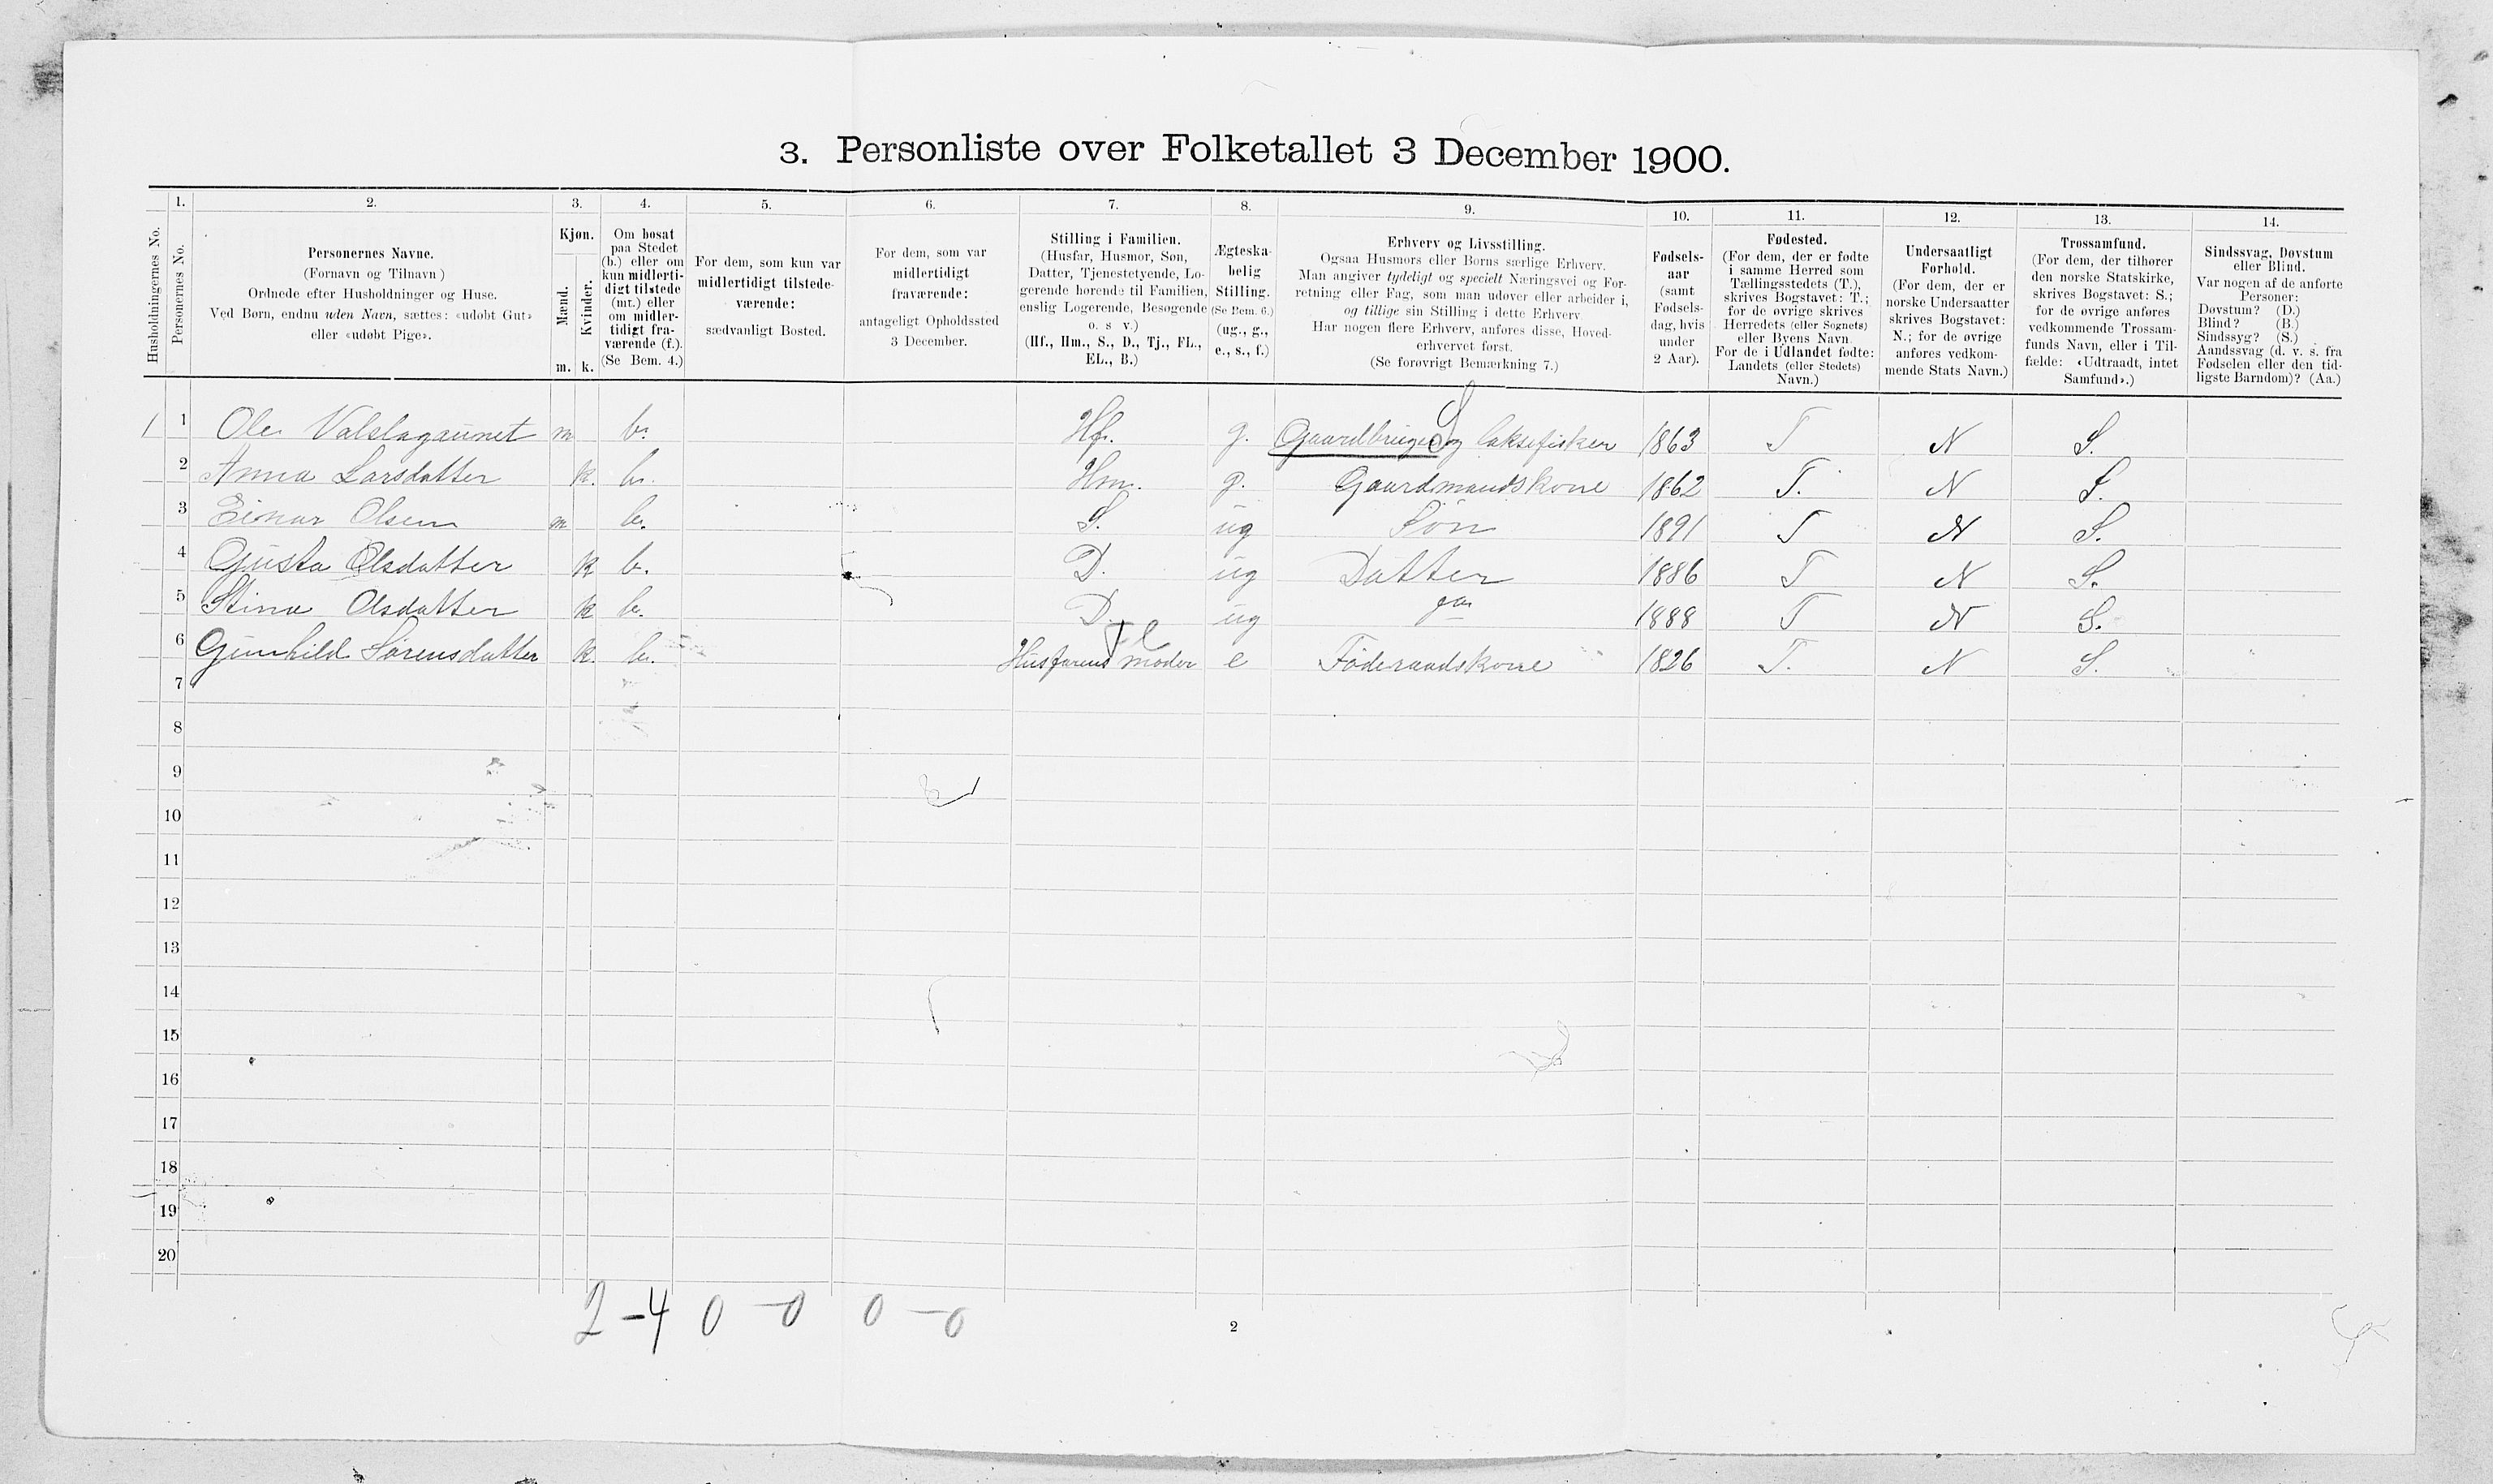 3. Personliste over Folketallet 3 December 1900.
Husholdningernes No.
1. Personernes No.
2. Personernes Navne.
(Fornavn og Tilnavn)
Ordnede efter Husholdninger og Huse.
Ved Børn, endnu uden Navn, sættes: «udøbt Gut»
eller «udøbt Pige».
3. Kjøn.
Mænd. m.
Kvinder. k.
4. Om bosat
paa Stedet
(b.) eller om
kun midlerti-
digt tilstede
(mt.) eller
om midler-
tidigt fra-
værende (f.).
(Se Bem. 4.)
5. For dem, som kun var
midlertidigt tilstede-
værende:
sædvanligt Bosted.
6. For dem, som var
midlertidigt
fraværende:
antageligt Opholdssted
3 December.
7. Stilling i Familien.
(Husfar, Husmor, Søn,
Datter, Tjenestetyende, Lo-
gerende hørende til Familien,
enslig Logerende, Besøgende
o. s. v.)
(Hf., Hm., S., D., Tj., FL.,
EL., B.)
8. Ægteska-
belig
Stilling.
(Se Bem. 6.)
(ug., g.,
e., s., f.)
9. Erhverv og Livsstilling.
Ogsaa Husmors eller Børns særlige Erhverv.
Man angiver tydeligt og specielt Næringsvei og For-
retning eller Fag, som man udøver eller arbeider i,
og tillige sin Stilling i dette Erhverv.
Har nogen flere Erhverv, anføres disse, Hoved-
erhvervet først.
(Se forøvrigt Bemærkning 7.)
10. Fødsels-
aar
(samt
Fødsels-
dag, hvis
under
2 Aar).
11. Fødested.
(For dem, der er fødte
i samme Herred som
Tællingsstedets (T.),
skrives Bogstavet: T.;
for de øvrige skrives
Herredets (eller Sognets)
eller Byens Navn.
For de i Udlandet fødte:
Landets (eller Stedets)
Navn.)
12. Undersaatligt
Forhold.
(For dem, der er
norske Undersaatter
skrives Bogstavet:
N.; for de øvrige
anføres vedkom-
mende Stats Navn.)
13. Trossamfund.
(For dem, der tilhører
den norske Statskirke,
skrives Bogstavet: S.;
for de øvrige anføres
vedkommende Trossam-
funds Navn, eller i Til-
fælde: «Udtraadt, intet
Samfund».)
14. Sindssvag, Døvstum
eller Blind.
Var nogen af de anførte
Personer:
Døvstum? (D.)
Blind? (B.)
Sindssyg? (S.)
Aandssvag (d. v. s. fra
Fødselen eller den tid-
ligste Barndom)? (Aa.)
1 1 Ole Valslagaunet m b. Hf. g. Gaardbruger og laksefisker 1863 T N S.
2 Anna Larsdatter k. b. Hm. g. Gaardmandskone 1862 T. N S.
3 Einar Olsen m b. S. ug Søn 1891 T N S.
4 Gusta Olsdatter k b. D. ug Datter 1886 T N S.
5 Stina Olsdatter k b. D. ug 1888 T N S.
6 Gunhild Sørensdatter k. b. Husfarens moder e Føderaadskone 1826 T. N S.
7
8
9
10
11
12
13
14
15
16
17
18
19
20
2 - 4 0 - 0 0 - 0
2